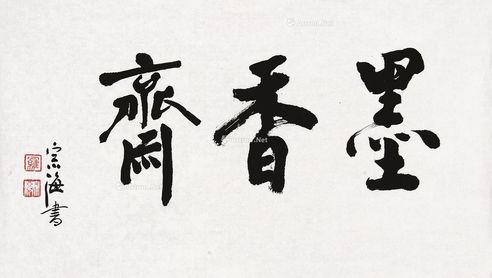 墨香齋
宗海書